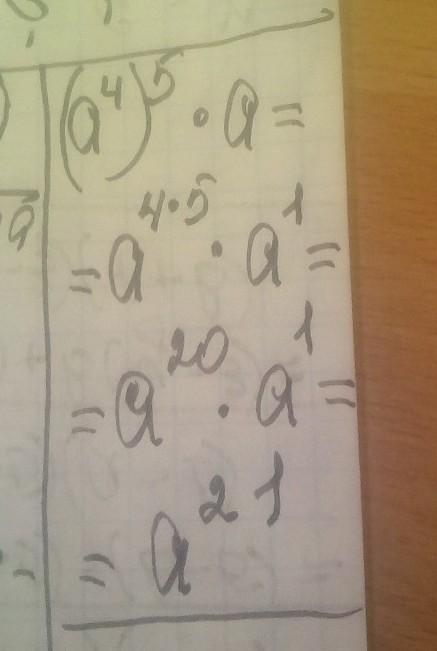 (a⁴)⁵ · a =
= a⁴·⁵ · a¹ =
= a²⁰ · a¹ =
= a²¹